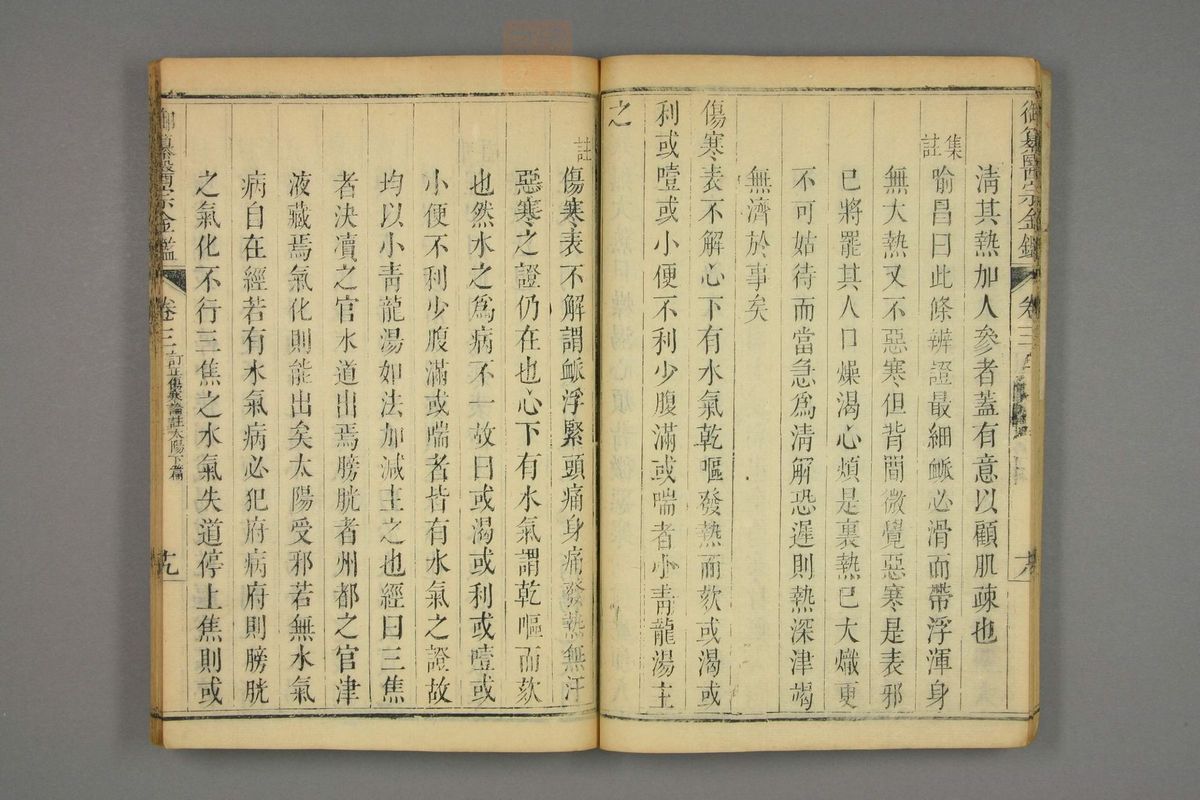 御纂醫宗金鑑 卷三
清其熱加人參者蓋有意以顧肌疎也
集註
喻昌曰此條辨證最細脈必滑而帶浮渾身
無大熱又不惡寒但背間微覺惡寒是表邪
已將罷其人口燥渴心煩是裏熱已大熾更
不可姑待而當急爲清解恐遲則熱深津竭
無濟於事矣
傷寒表不解心下有水氣乾嘔發熱而欬或渴或
利或噎或小便不利少腹滿或喘者小青龍湯主
之
註
傷寒表不解謂脈浮緊頭痛身痛發熱無汗
惡寒之證仍在也心下有水氣謂乾嘔而欬
也然水之爲病不一故曰或渴或利或噎或
小便不利少腹滿或喘者皆有水氣之證故
均以小青龍湯如法加減主之也經曰三焦
者決瀆之官水道出焉膀胱者州都之官津
液藏焉氣化則能出矣太陽受邪若無水氣
病自在經若有水氣病必犯府病府則膀胱
之氣化不行三焦之水氣失道停上焦則或
御纂醫宗金鑑 卷三 訂正傷寒論註太陽下篇 十九